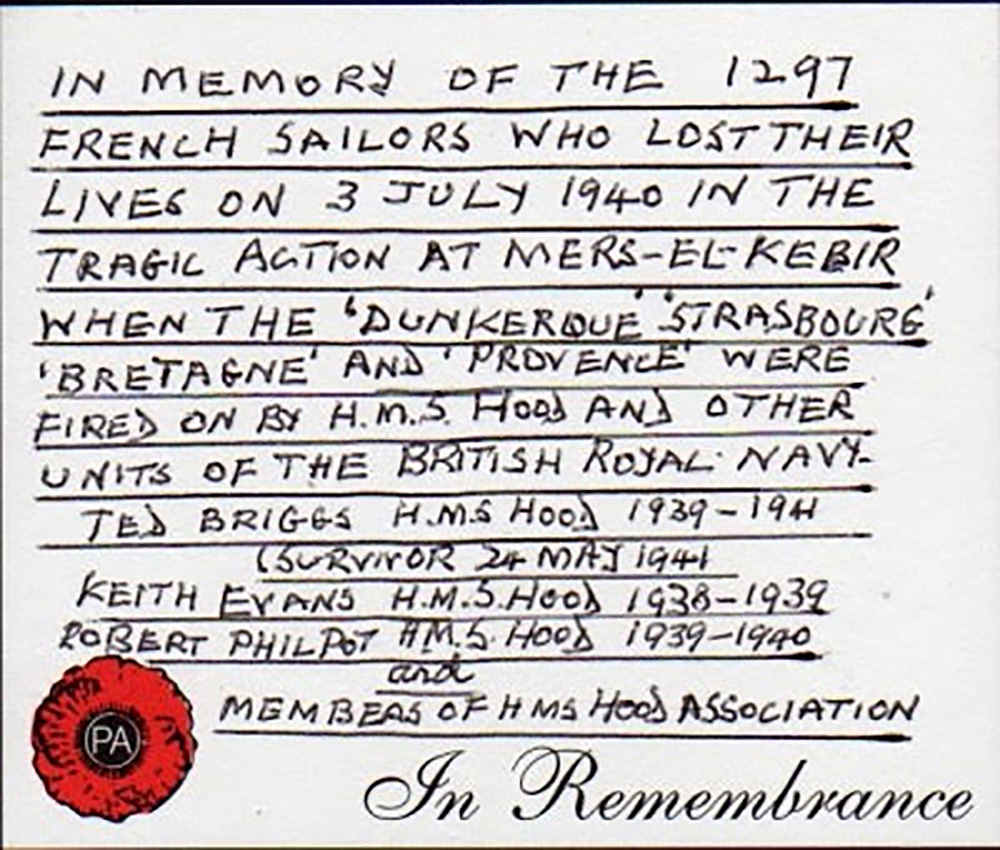 IN MEMORY OF THE 1297
FRENCH SAILORS WHO LOST THEIR
LIVES ON 3 JULY 1940 IN THE
TRAGIC ACTION AT MERS-EL-KEBIR
WHEN THE 'DUNKERQUE' 'STRASBOURG'
'BRETAGNE' AND 'PROVENCE' WERE
FIRED ON BY H.M.S. HOOD AND OTHER
UNITS OF THE BRITISH ROYAL NAVY.
TED BRIGGS H.M.S HOOD 1939-1941
(SURVIVOR 24 MAY 1941
KEITH EVANS H.M.S. HOOD 1938-1939
ROBERT PHILPOT H.M.S. HOOD 1939-1940
and
MEMBERS OF HMS HOOD ASSOCIATION
PA
In Remembrance